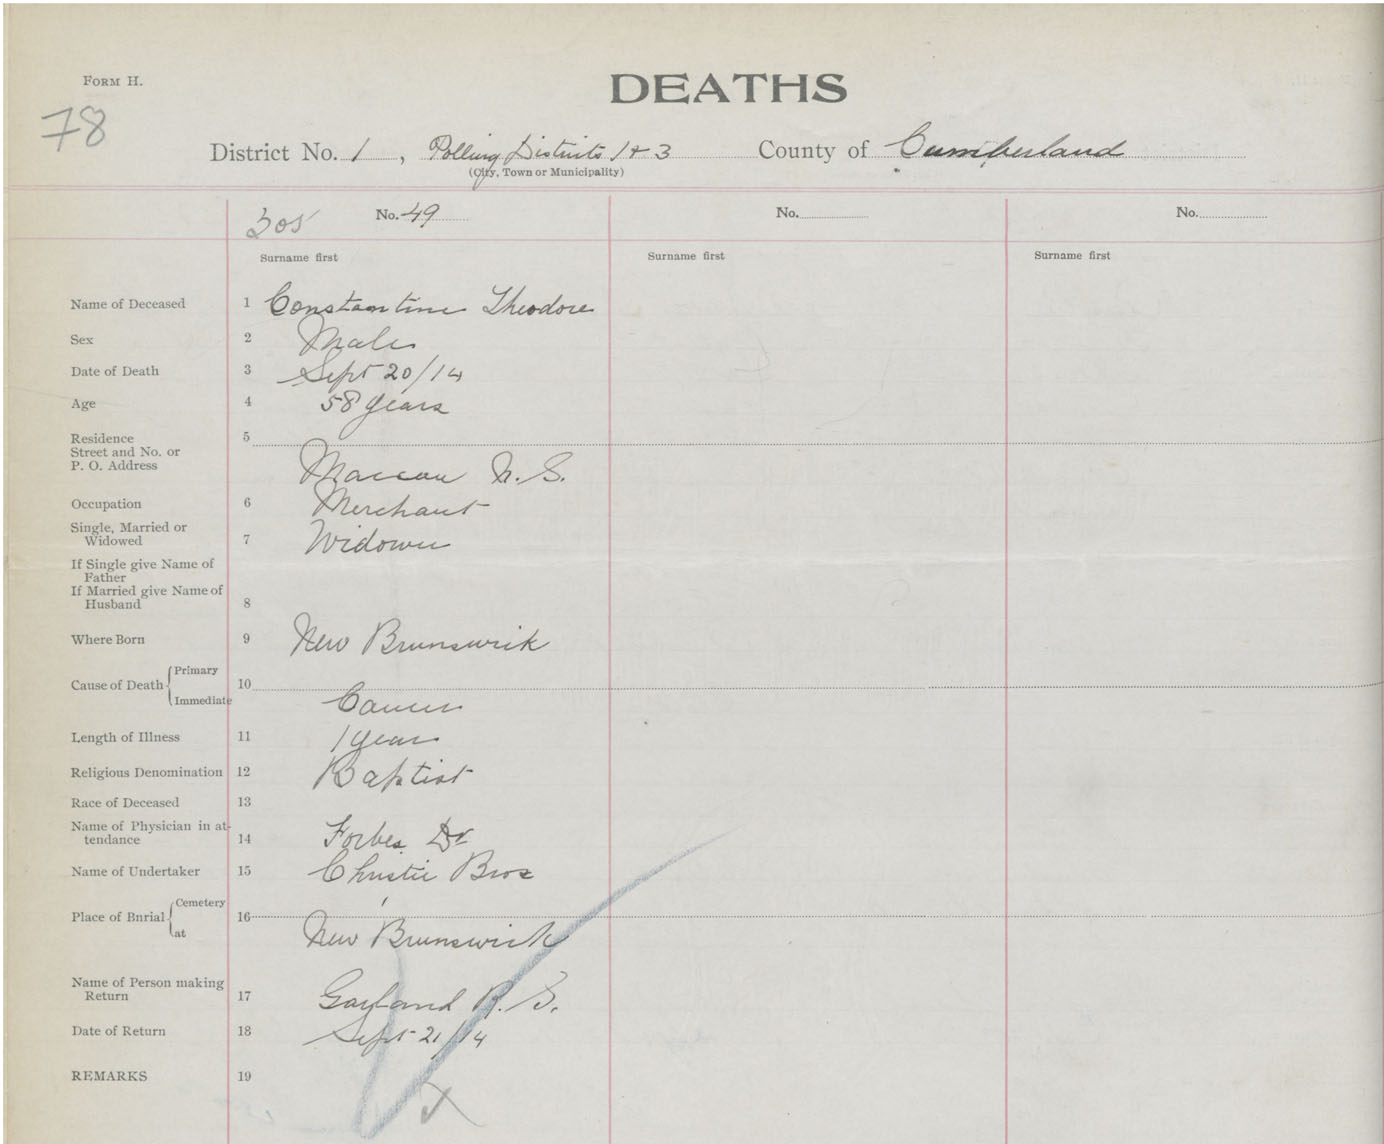 FORM H.
DEATHS
78
District No. 1, Polling Districts 1 + 3 County of Cumberland
(City, Town or Municipality)
305 No. 49 No. No.
Surname first Surname first Surname first
Name of Deceased 1 Constantine Theodore
Sex 2 Male
Date of Death 3 Sept 20/14
Age 4 58 years
Residence 5
Street and No. or
P. O. Address Maccan N.S.
Occupation 6 Merchant
Single, Married or
Widowed 7 Widower
If Single give Name of
Father
If Married give Name of
Husband 8
Where Born 9 New Brunswick
Cause of Death Primary 10
Immediate Cancer
Length of Illness 11 1 year
Religious Denomination 12 Baptist
Race of Deceased 13
Name of Physician in at-
tendance 14 Forbes Dr
Name of Undertaker 15 Christie Bros
Place of Bnrial Cemetery 16
at New Brunswick
Name of Person making
Return 17 Garland R. S.
Date of Return 18 Sept 21/14
REMARKS 19